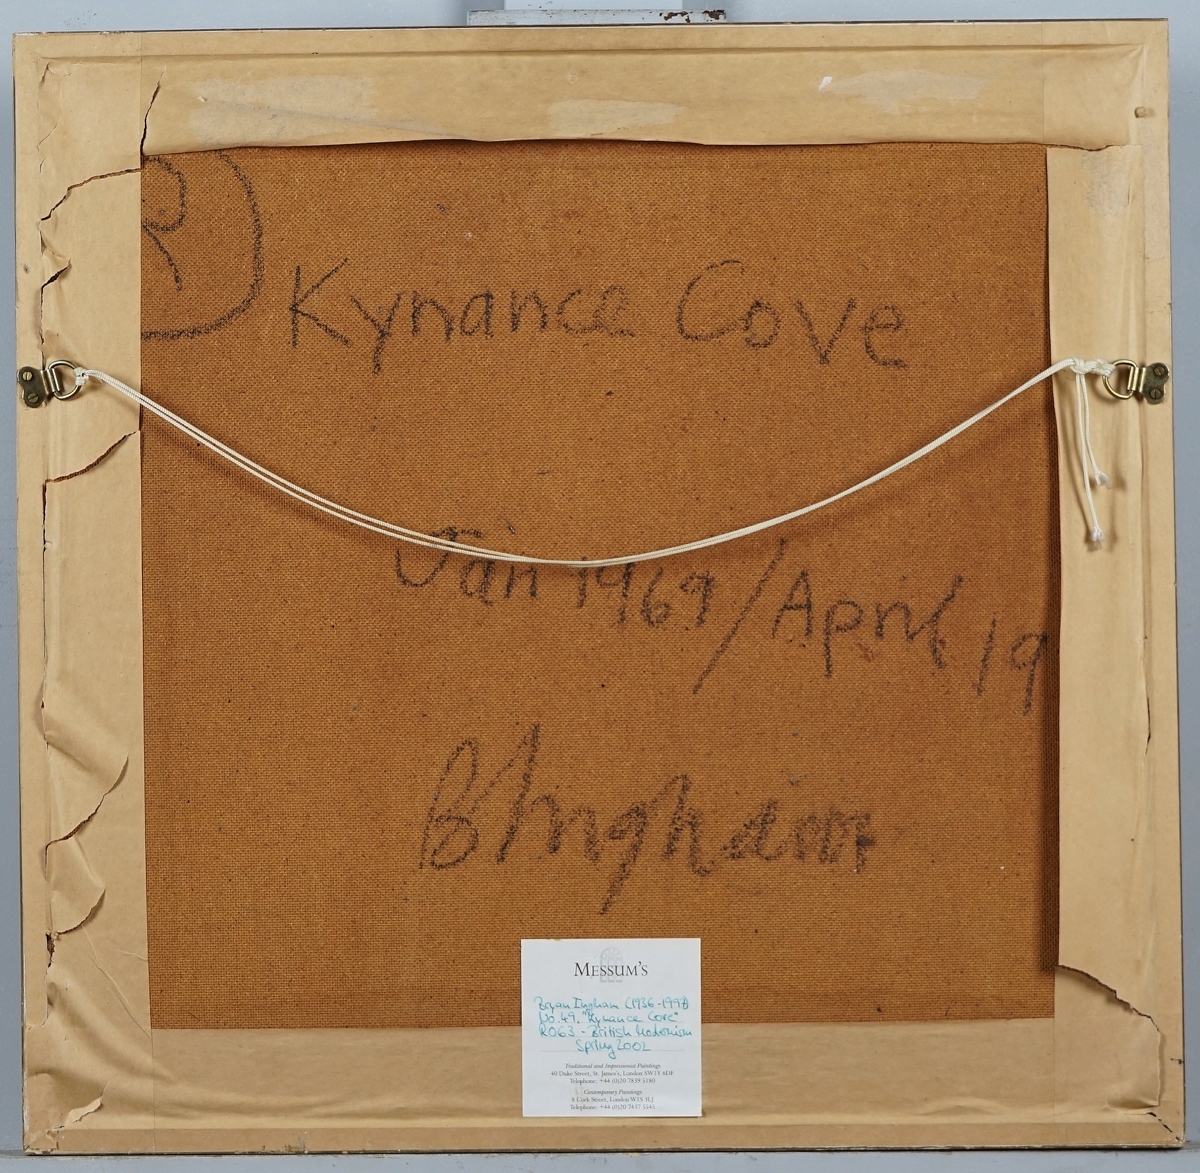 R
Kynance Cove
Jan 1969/April 19
BIngham
MESSUM'S
Bryan Ingham (1936-1997)
No. 49. "Kynance Cove"
R063 - British Modernism
Spring 2002
Traditional and Impressionist Paintings
40 Duke Street, St. James's, London SW1Y 6DF
Telephone: +44 (0)20 7839 5180
Contemporary Paintings
8 Cork Street, London W1S 3LJ
Telephone: +44 (0)20 7437 5545